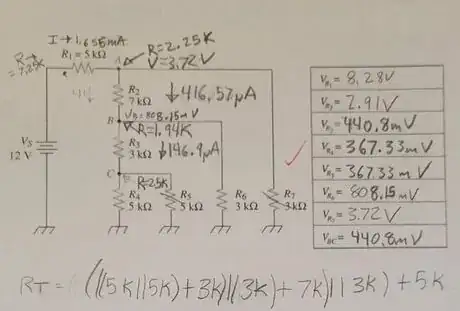 I → 1.655mA
R₁ = 5 kΩ
R→
= 7.25K
A
R = 2.25K
V = 3.72V
R₂
7 kΩ
↓ 416.57μA
B
V_B = 808.15mV
R = 1.94K
V_S
12 V
R₃
3 kΩ
↓ 146.9μA
C
R = 2.5K
R₄
5 kΩ
R₅
5 kΩ
R₆
3 kΩ
R₇
3 kΩ
V_R₁ = 8.28V
V_R₂ = 2.91V
V_R₃ = 440.8mV
V_R₄ = 367.33mV
V_R₅ = 367.33mV
V_R₆ = 808.15mV
V_R₇ = 3.72V
V_BC = 440.8mV
RT = ((((5K||5K)+3K)||3K)+7K)||3K)+5K